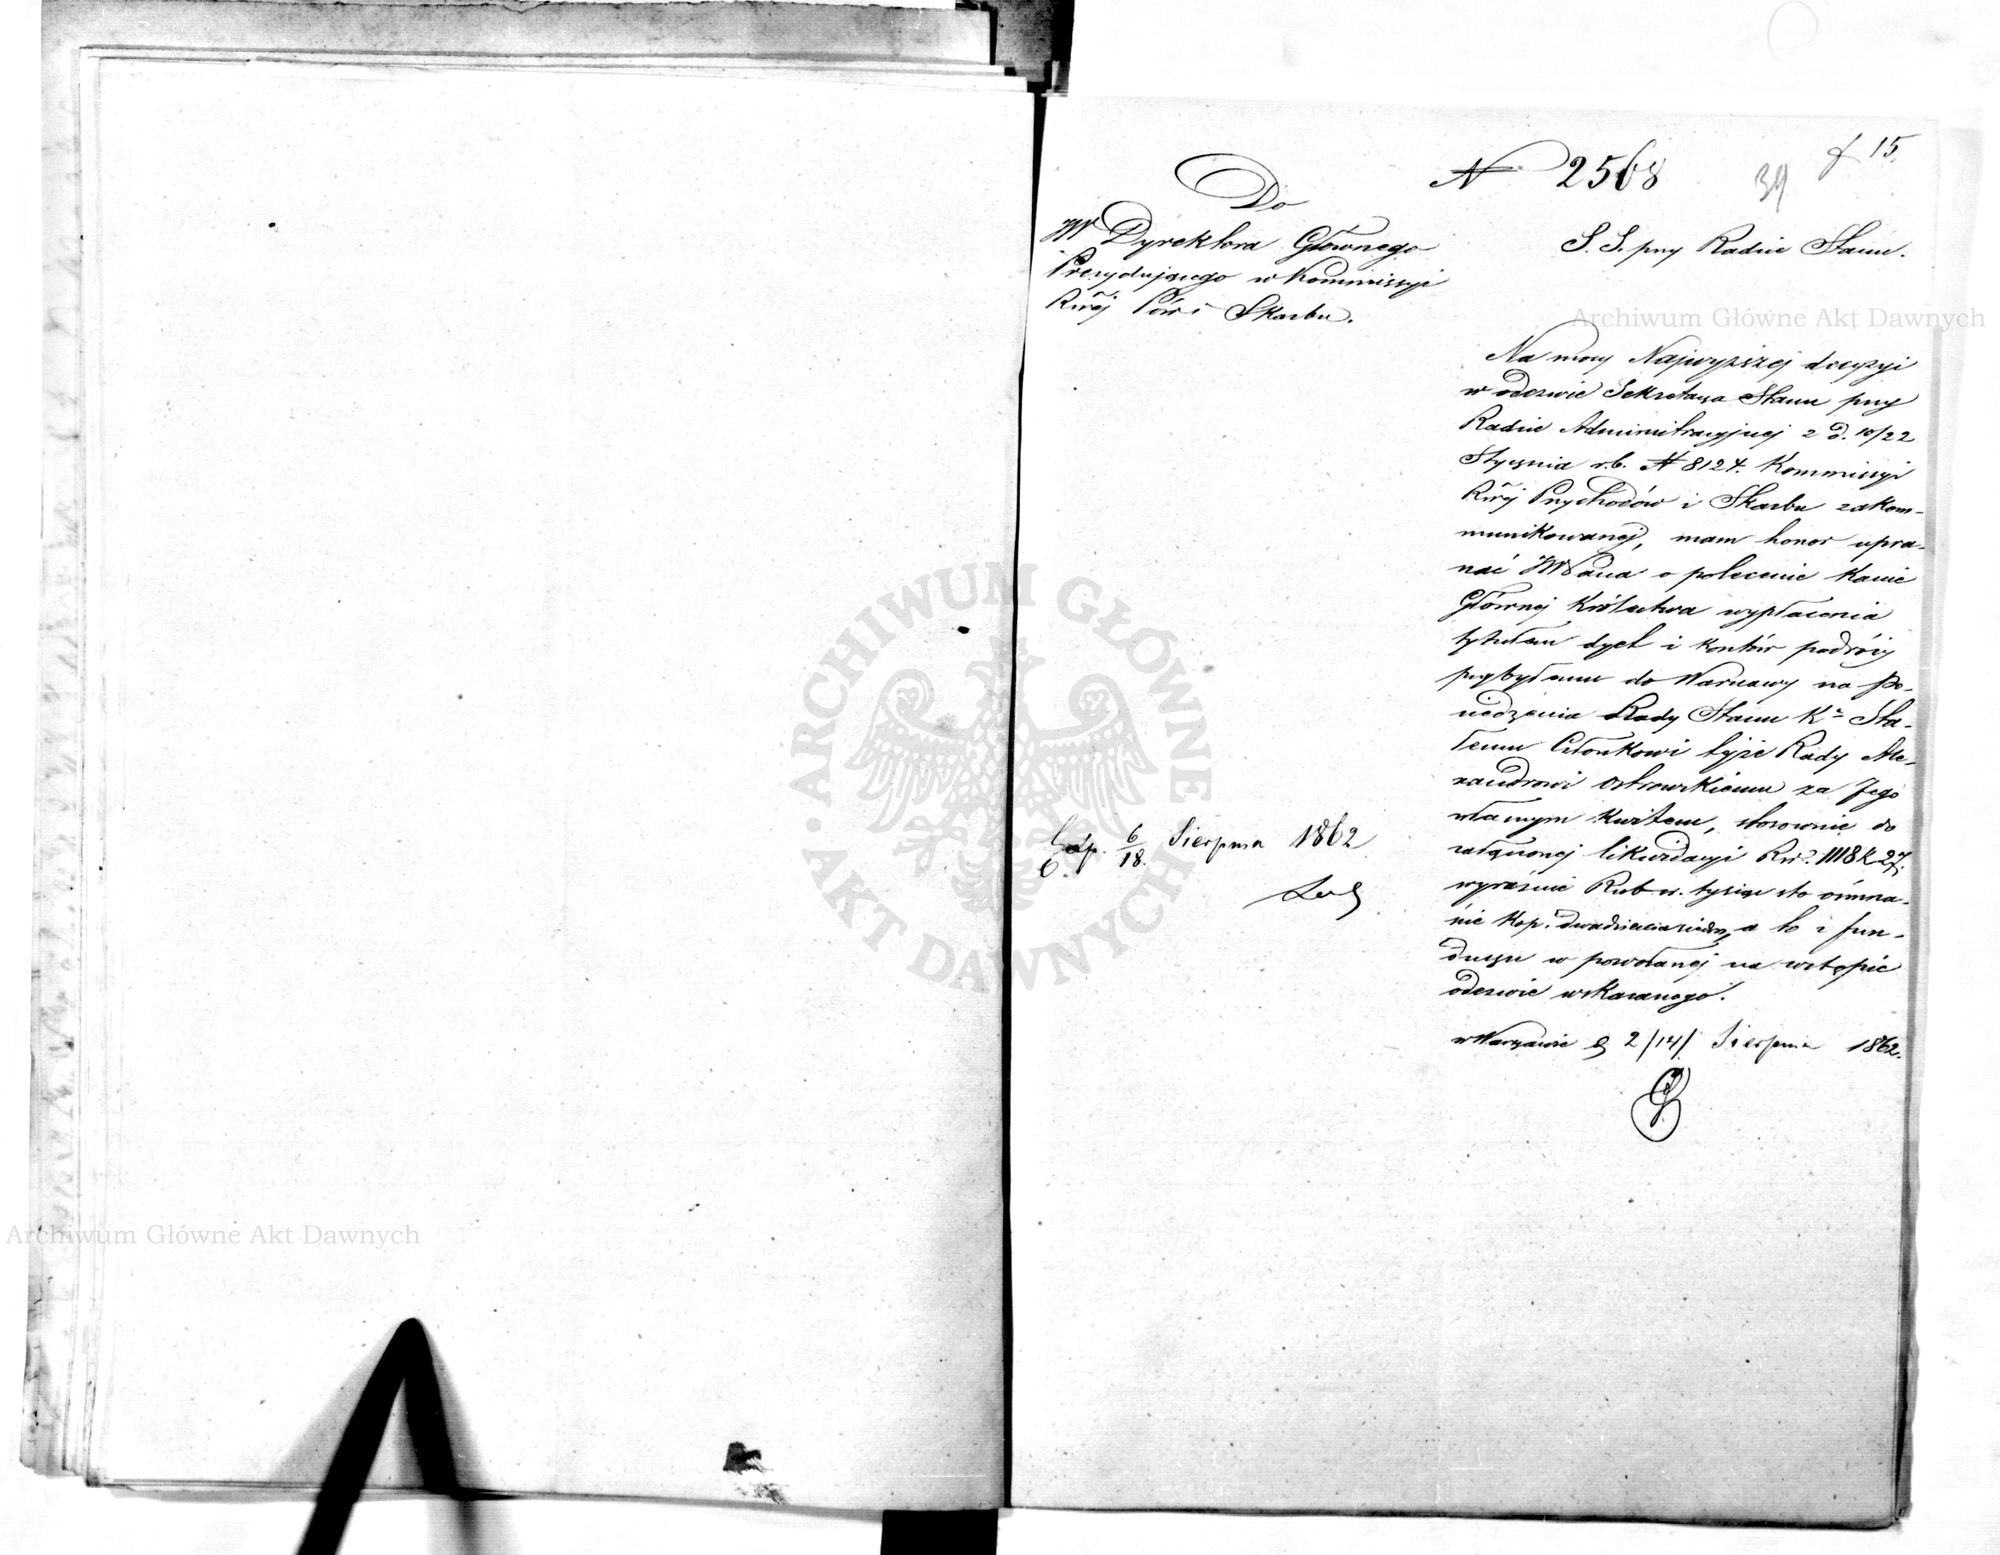 15
39
N 2568
Do
JW Dyrektora Głównego
Prezydującego w Kommissyi
Rwéj Pów i Skarbu.
S. S. przy Radzie Stanu.
Na mocy Najwyższéj decyzyi
w odezwie Sekretarza Stanu przy
Radzie Administracyjnej z d. 10/22
Stycznia r.b. N 8124. Kommissyi
Rwéj Przychodów i Skarbu zakom-
munikowanej, mam honor upra-
szać JW Pana o polecenie Kassie
Głównej Królestwa wypłacenia
tytułem dyet i kosztów podróży
przybyłemu do Warszawy na Po-
siedzenia Rady Stanu Kr Sta-
łemu Członkowi tejże Rady Ale-
xandrowi Ostrowskiemu za Jego
własnym kwitem, stosownie do
załączonej likwidacyi Rsr. 1118 k 27.
wyraźnie Rub. sr. tysiąc sto ośmna-
ście kop. dwadzieścia siedm, a to z fun-
duszu w powołanej na wstępie
odezwie wskazanego.
w Warszawie d 2/14/ Sierpnia 1862.
Exp. 6/18. Sierpnia 1862
Archiwum Główne Akt Dawnych
Archiwum Główne Akt Dawnych
ARCHIWUM GŁÓWNE
AKT DAWNYCH